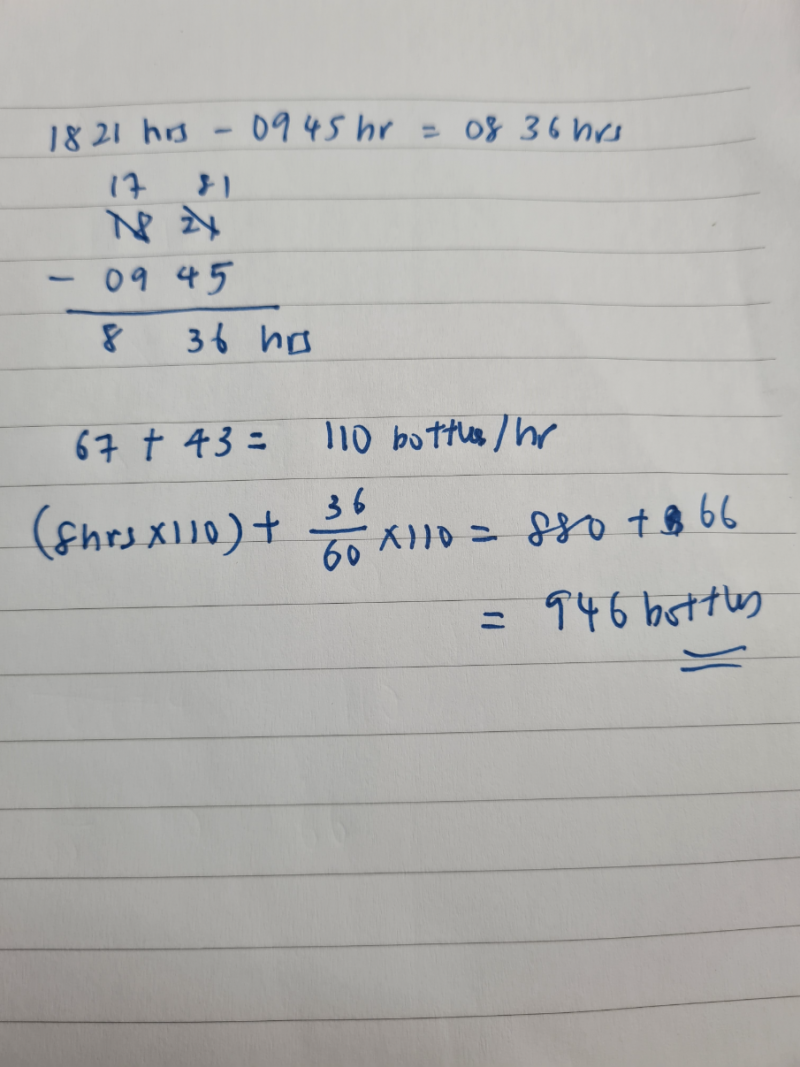 1821 hrs - 0945 hr = 08 36 hrs
17 81
18 21
- 09 45
8 36 hrs
67 + 43 = 110 bottles/hr
(8hrs x110) + 36/60 x110 = 880 + 66
= 946 bottles